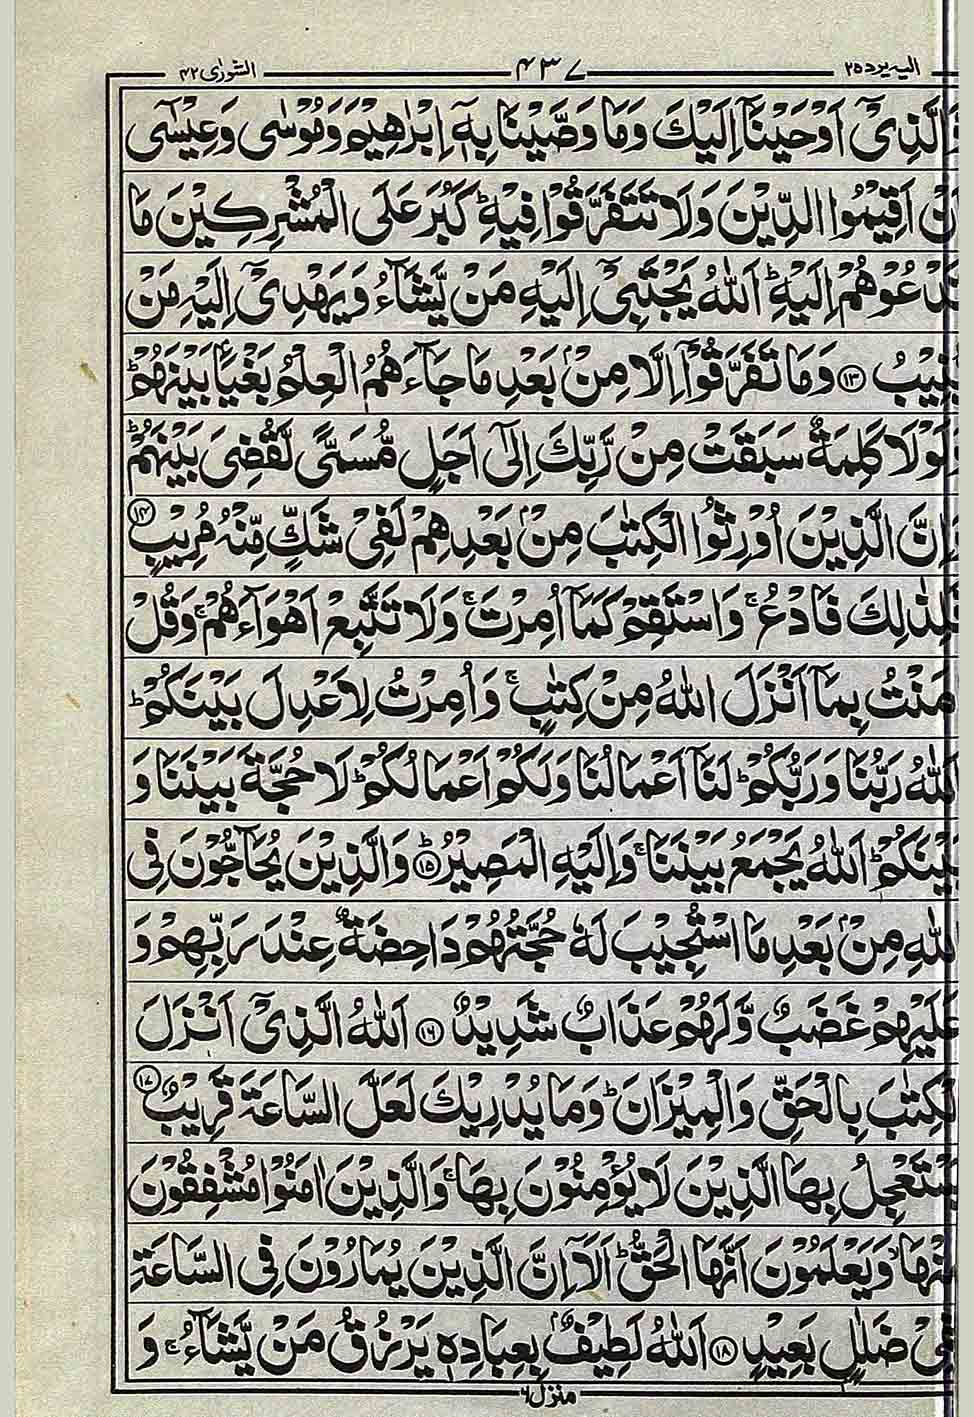 الشورٰی ۴۲ ۴۳۷ الیہ یرد ۲۵
الَّذِیْۤ اَوْحَیْنَاۤ اِلَیْكَ وَمَا وَصَّیْنَا بِهٖۤ اِبْرٰهِیْمَ وَمُوْسٰی وَعِیْسٰۤی
اَنْ اَقِیْمُوا الدِّیْنَ وَلَا تَتَفَرَّقُوْا فِیْهِ ؕ كَبُرَ عَلَی الْمُشْرِكِیْنَ مَا
تَدْعُوْهُمْ اِلَیْهِ ؕ اَللّٰهُ یَجْتَبِیْۤ اِلَیْهِ مَنْ یَّشَآءُ وَیَهْدِیْۤ اِلَیْهِ مَنْ
یُّنِیْبُ ﴿۱۳﴾ وَمَا تَفَرَّقُوْۤا اِلَّا مِنْۢ بَعْدِ مَا جَآءَهُمُ الْعِلْمُ بَغْیًۢا بَیْنَهُمْ ؕ
وَلَوْلَا كَلِمَةٌ سَبَقَتْ مِنْ رَّبِّكَ اِلٰۤی اَجَلٍ مُّسَمًّی لَّقُضِیَ بَیْنَهُمْ ؕ
وَاِنَّ الَّذِیْنَ اُوْرِثُوا الْكِتٰبَ مِنْۢ بَعْدِهِمْ لَفِیْ شَكٍّ مِّنْهُ مُرِیْبٍ ﴿۱۴﴾
فَلِذٰلِكَ فَادْعُ ۚ وَاسْتَقِمْ كَمَاۤ اُمِرْتَ ۚ وَلَا تَتَّبِعْ اَهْوَآءَهُمْ ۚ وَقُلْ
اٰمَنْتُ بِمَاۤ اَنْزَلَ اللّٰهُ مِنْ كِتٰبٍ ۚ وَاُمِرْتُ لِاَعْدِلَ بَیْنَكُمْ ؕ
اَللّٰهُ رَبُّنَا وَرَبُّكُمْ ؕ لَنَاۤ اَعْمَالُنَا وَلَكُمْ اَعْمَالُكُمْ ؕ لَا حُجَّةَ بَیْنَنَا وَ
بَیْنَكُمْ ؕ اَللّٰهُ یَجْمَعُ بَیْنَنَا ۚ وَاِلَیْهِ الْمَصِیْرُ ﴿۱۵﴾ؕ وَالَّذِیْنَ یُحَآجُّوْنَ فِی
اللّٰهِ مِنْۢ بَعْدِ مَا اسْتُجِیْبَ لَهٗ حُجَّتُهُمْ دَاحِضَةٌ عِنْدَ رَبِّهِمْ وَ
عَلَیْهِمْ غَضَبٌ وَّلَهُمْ عَذَابٌ شَدِیْدٌ ﴿۱۶﴾ اَللّٰهُ الَّذِیْۤ اَنْزَلَ
الْكِتٰبَ بِالْحَقِّ وَالْمِیْزَانَ ؕ وَمَا یُدْرِیْكَ لَعَلَّ السَّاعَةَ قَرِیْبٌ ﴿۱۷﴾
یَسْتَعْجِلُ بِهَا الَّذِیْنَ لَا یُؤْمِنُوْنَ بِهَا ۚ وَالَّذِیْنَ اٰمَنُوْا مُشْفِقُوْنَ
مِنْهَا ۙ وَیَعْلَمُوْنَ اَنَّهَا الْحَقُّ ؕ اَلَاۤ اِنَّ الَّذِیْنَ یُمَارُوْنَ فِی السَّاعَةِ
لَفِیْ ضَلٰلٍۭ بَعِیْدٍ ﴿۱۸﴾ اَللّٰهُ لَطِیْفٌۢ بِعِبَادِهٖ یَرْزُقُ مَنْ یَّشَآءُ ۚ وَ
منزل ۶